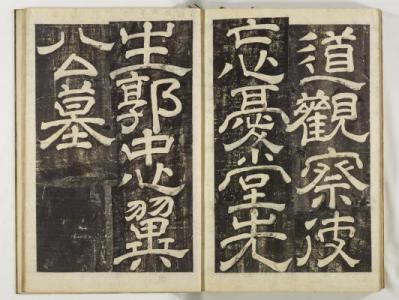 道觀察使
忘憂堂先
生郭忠翼
公墓